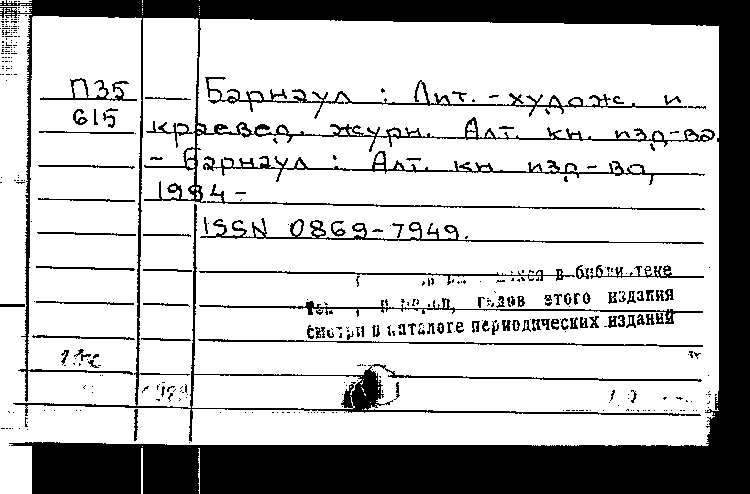 П35 Барнаул : Лит. -худож. и
615 краевед. журн. Алт. кн. изд-ва.
- Барнаул : Алт. кн. изд-во,
1984-
ISSN 0869-7949.
в библиотеке
годов этого издания
смотри в каталоге периодических изданий